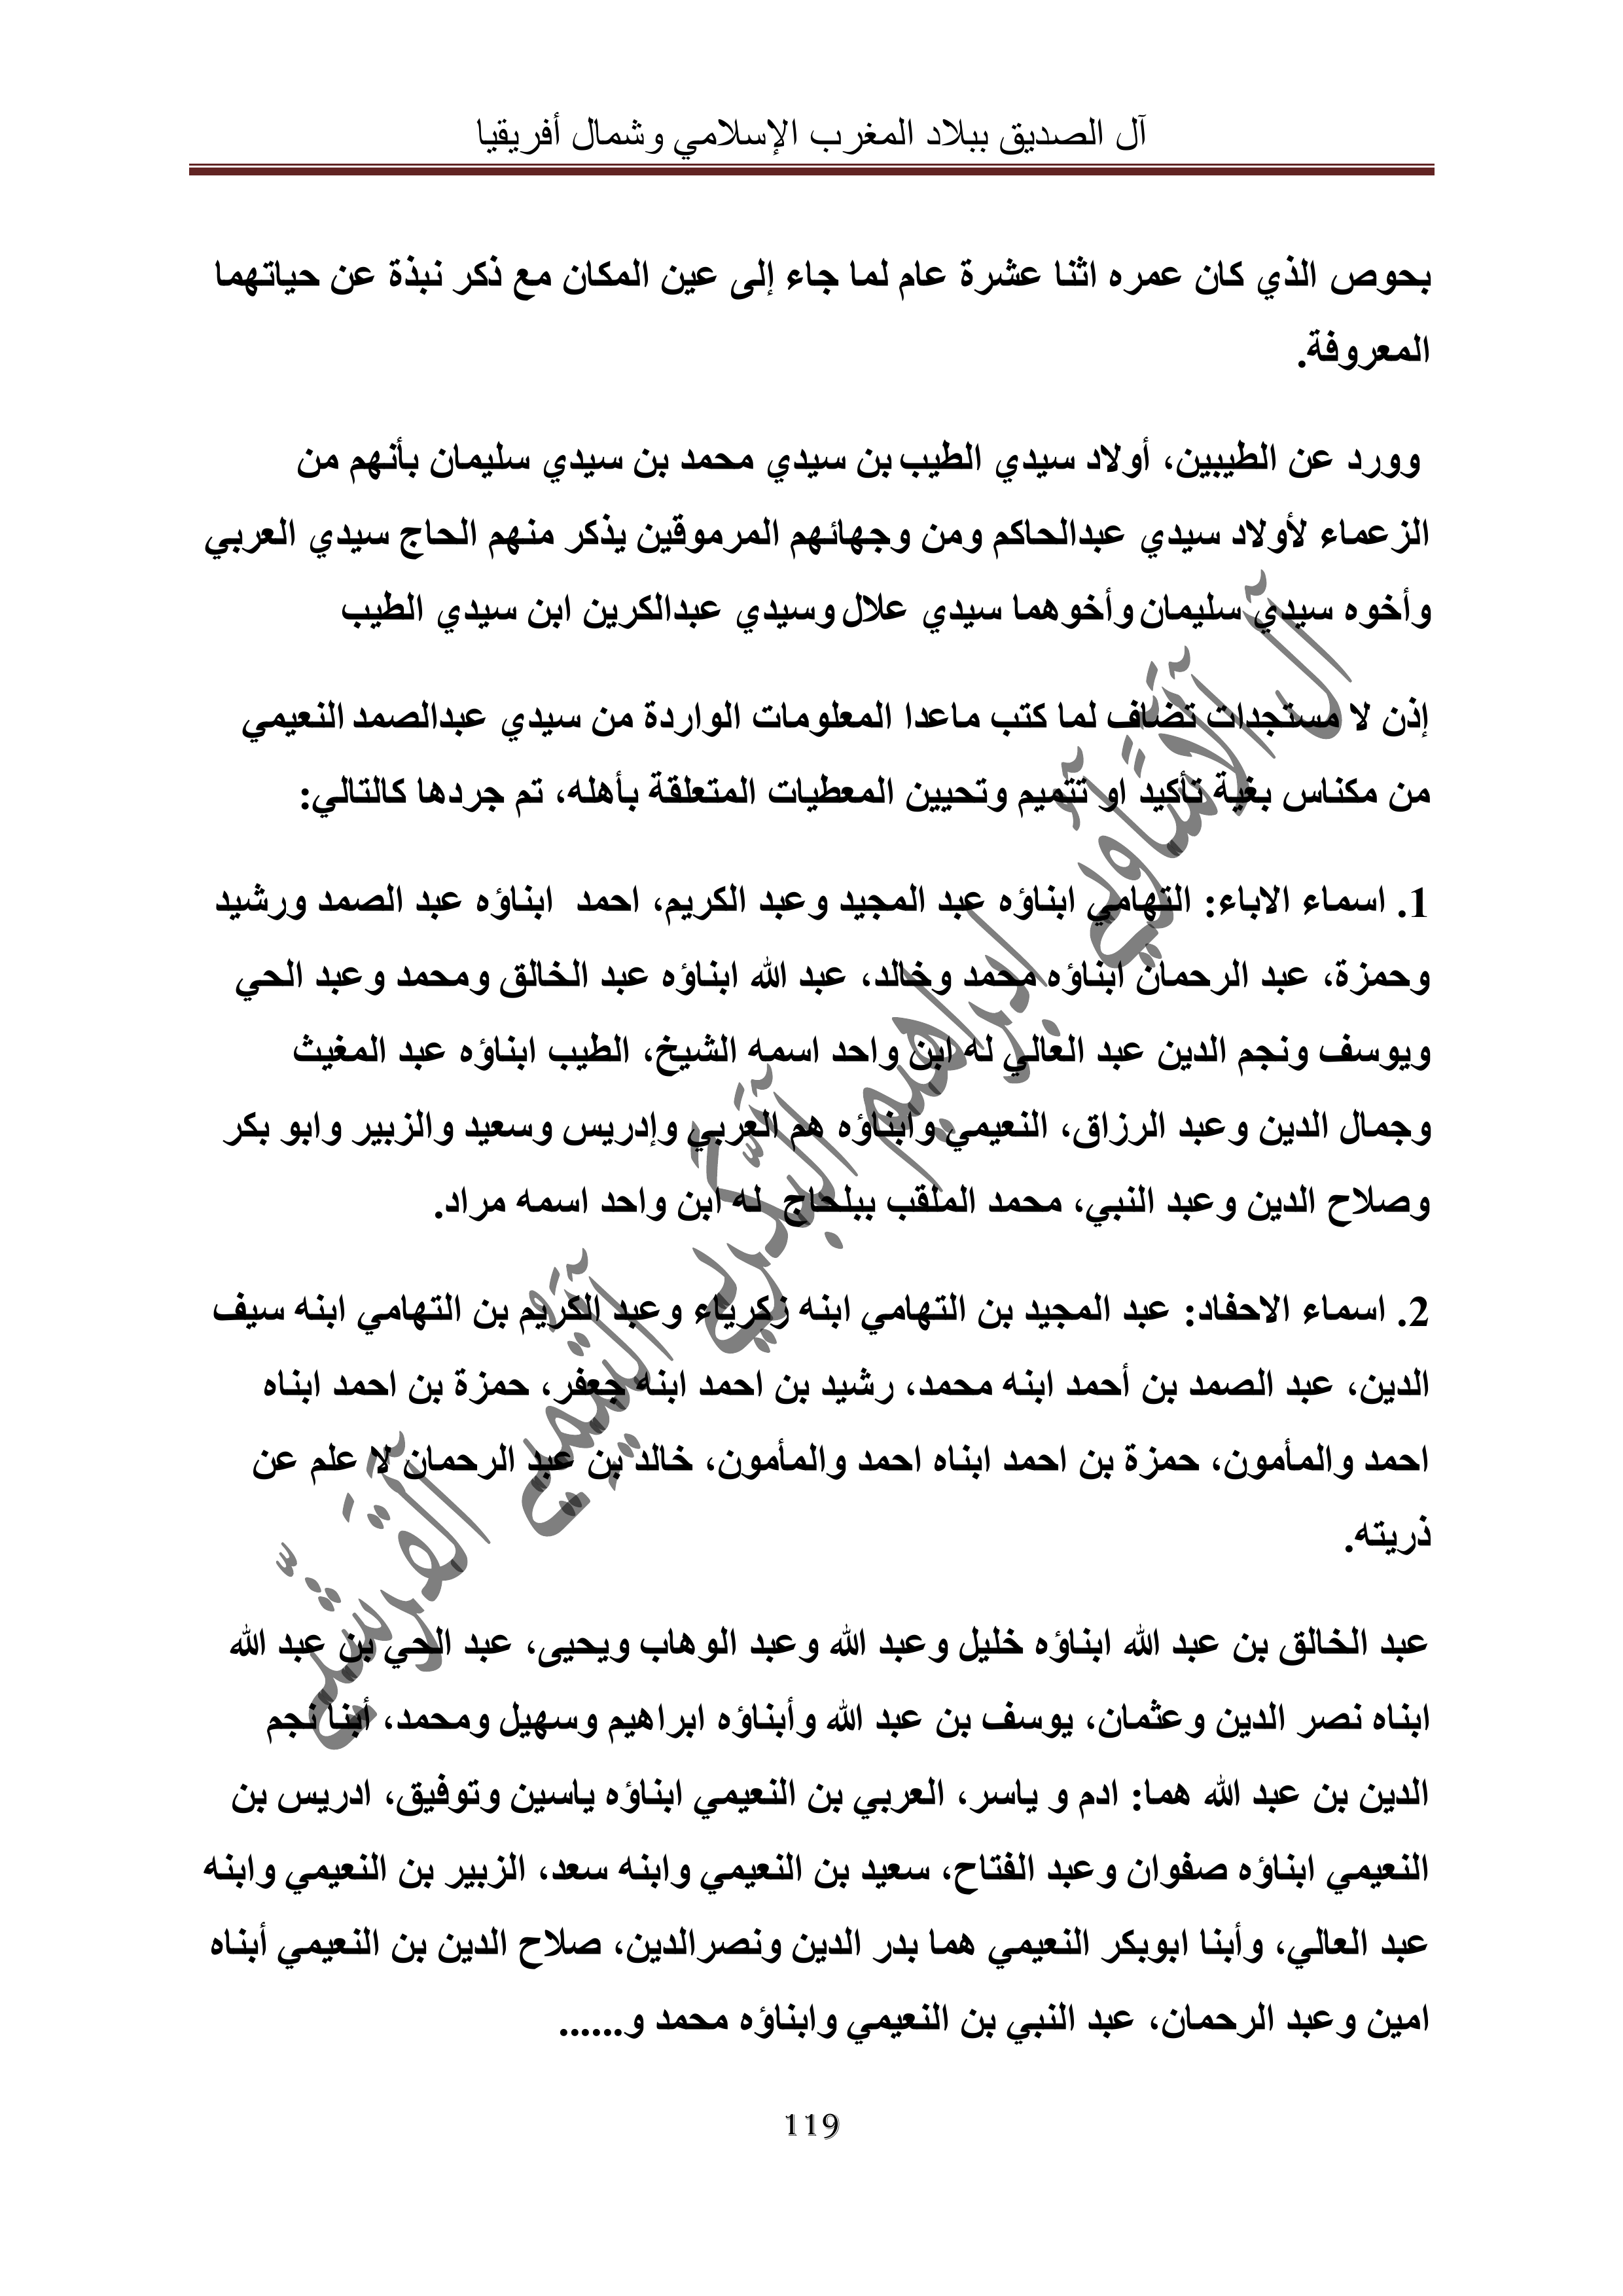 آل الصديق ببلاد المغرب الإسلامي وشمال أفريقيا
بحوص الذي كان عمره اثنا عشرة عام لما جاء إلى عين المكان مع ذكر نبذة عن حياتهما
المعروفة.
وورد عن الطيبين، أولاد سيدي الطيب بن سيدي محمد بن سيدي سليمان بأنهم من
الزعماء لأولاد سيدي عبدالحاكم ومن وجهائهم المرموقين يذكر منهم الحاج سيدي العربي
وأخوه سيدي سليمان وأخوهما سيدي علال وسيدي عبدالكرين ابن سيدي الطيب
إذن لا مستجدات تضاف لما كتب ماعدا المعلومات الواردة من سيدي عبدالصمد النعيمي
من مكناس بغية تأكيد او تتميم وتحيين المعطيات المتعلقة بأهله، تم جردها كالتالي:
1. اسماء الاباء: التهامي ابناؤه عبد المجيد وعبد الكريم، احمد ابناؤه عبد الصمد ورشيد
وحمزة، عبد الرحمان ابناؤه محمد وخالد، عبد الله ابناؤه عبد الخالق ومحمد وعبد الحي
ويوسف ونجم الدين عبد العالي له ابن واحد اسمه الشيخ، الطيب ابناؤه عبد المغيث
وجمال الدين وعبد الرزاق، النعيمي وابناؤه هم العربي وإدريس وسعيد والزبير وابو بكر
وصلاح الدين وعبد النبي، محمد الملقب ببلحاج له ابن واحد اسمه مراد.
2. اسماء الاحفاد: عبد المجيد بن التهامي ابنه زكرياء وعبد الكريم بن التهامي ابنه سيف
الدين، عبد الصمد بن أحمد ابنه محمد، رشيد بن احمد ابنه جعفر، حمزة بن احمد ابناه
احمد والمأمون، حمزة بن احمد ابناه احمد والمأمون، خالد بن عبد الرحمان لا علم عن
ذريته.
عبد الخالق بن عبد الله ابناؤه خليل وعبد الله وعبد الوهاب ويحيى، عبد الحي بن عبد الله
ابناه نصر الدين وعثمان، يوسف بن عبد الله وأبناؤه ابراهيم وسهيل ومحمد، أبنا نجم
الدين بن عبد الله هما: ادم و ياسر، العربي بن النعيمي ابناؤه ياسين وتوفيق، ادريس بن
النعيمي ابناؤه صفوان وعبد الفتاح، سعيد بن النعيمي وابنه سعد، الزبير بن النعيمي وابنه
عبد العالي، وأبنا ابوبكر النعيمي هما بدر الدين ونصرالدين، صلاح الدين بن النعيمي أبناه
امين وعبد الرحمان، عبد النبي بن النعيمي وابناؤه محمد و......
119